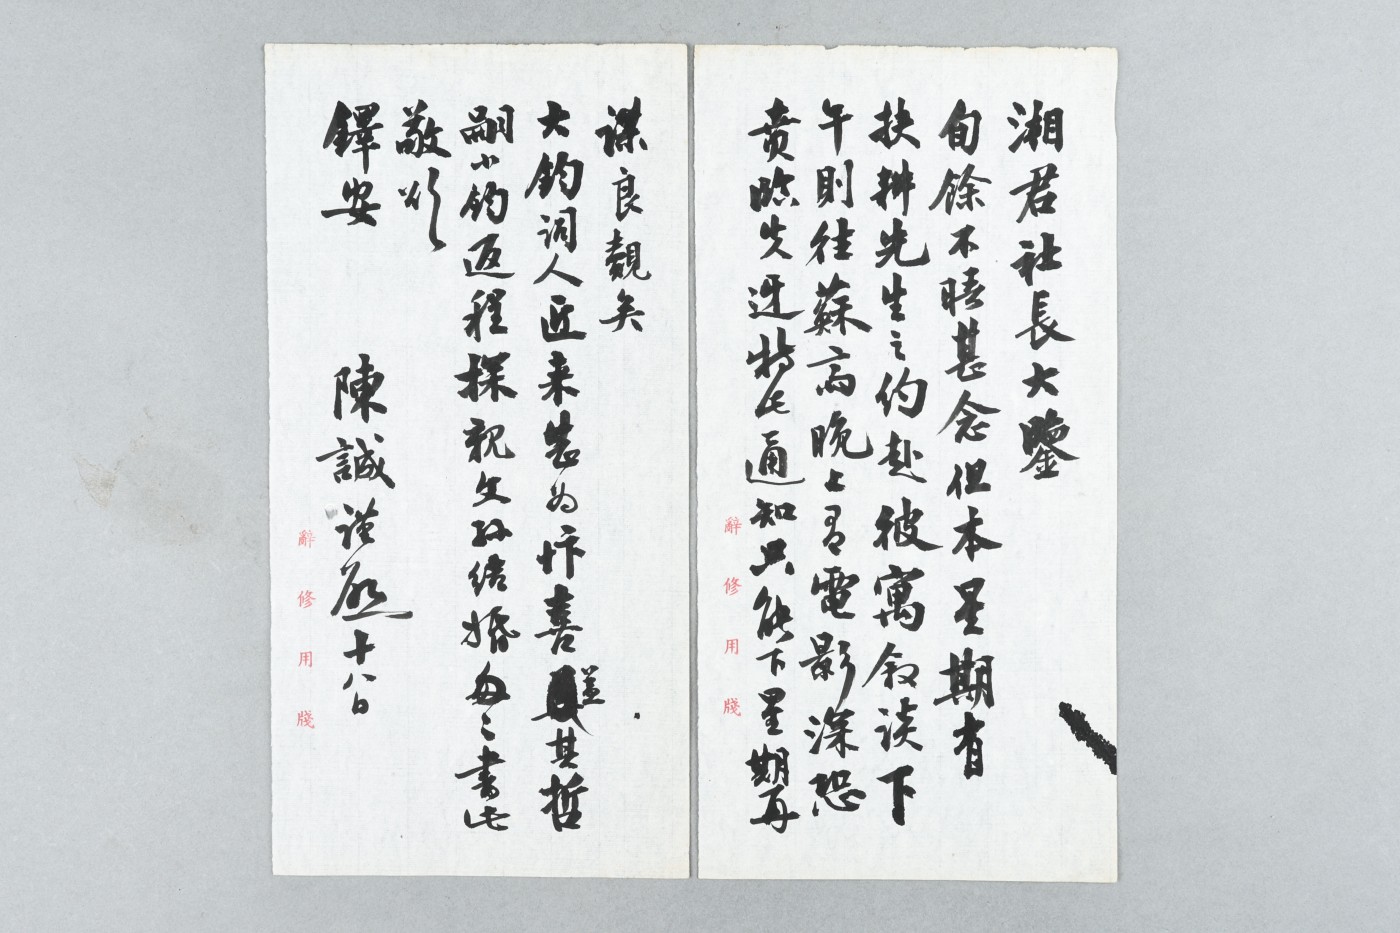 湘君社長大鑒
旬餘不晤甚念但本星期有
扶搿先生之約赴彼寓叙談下
午則往蘇高晚上有電影深恐
賁臨失迓特此通知只能下星期再
辭修用牋
謀良覿矣
大鈞詞人匠来裝为忭喜其哲
嗣小鈞返程探親文孫結婚匆〻書此
敬頌
鐸安 陳誠謹啟十八日
辭修用牋